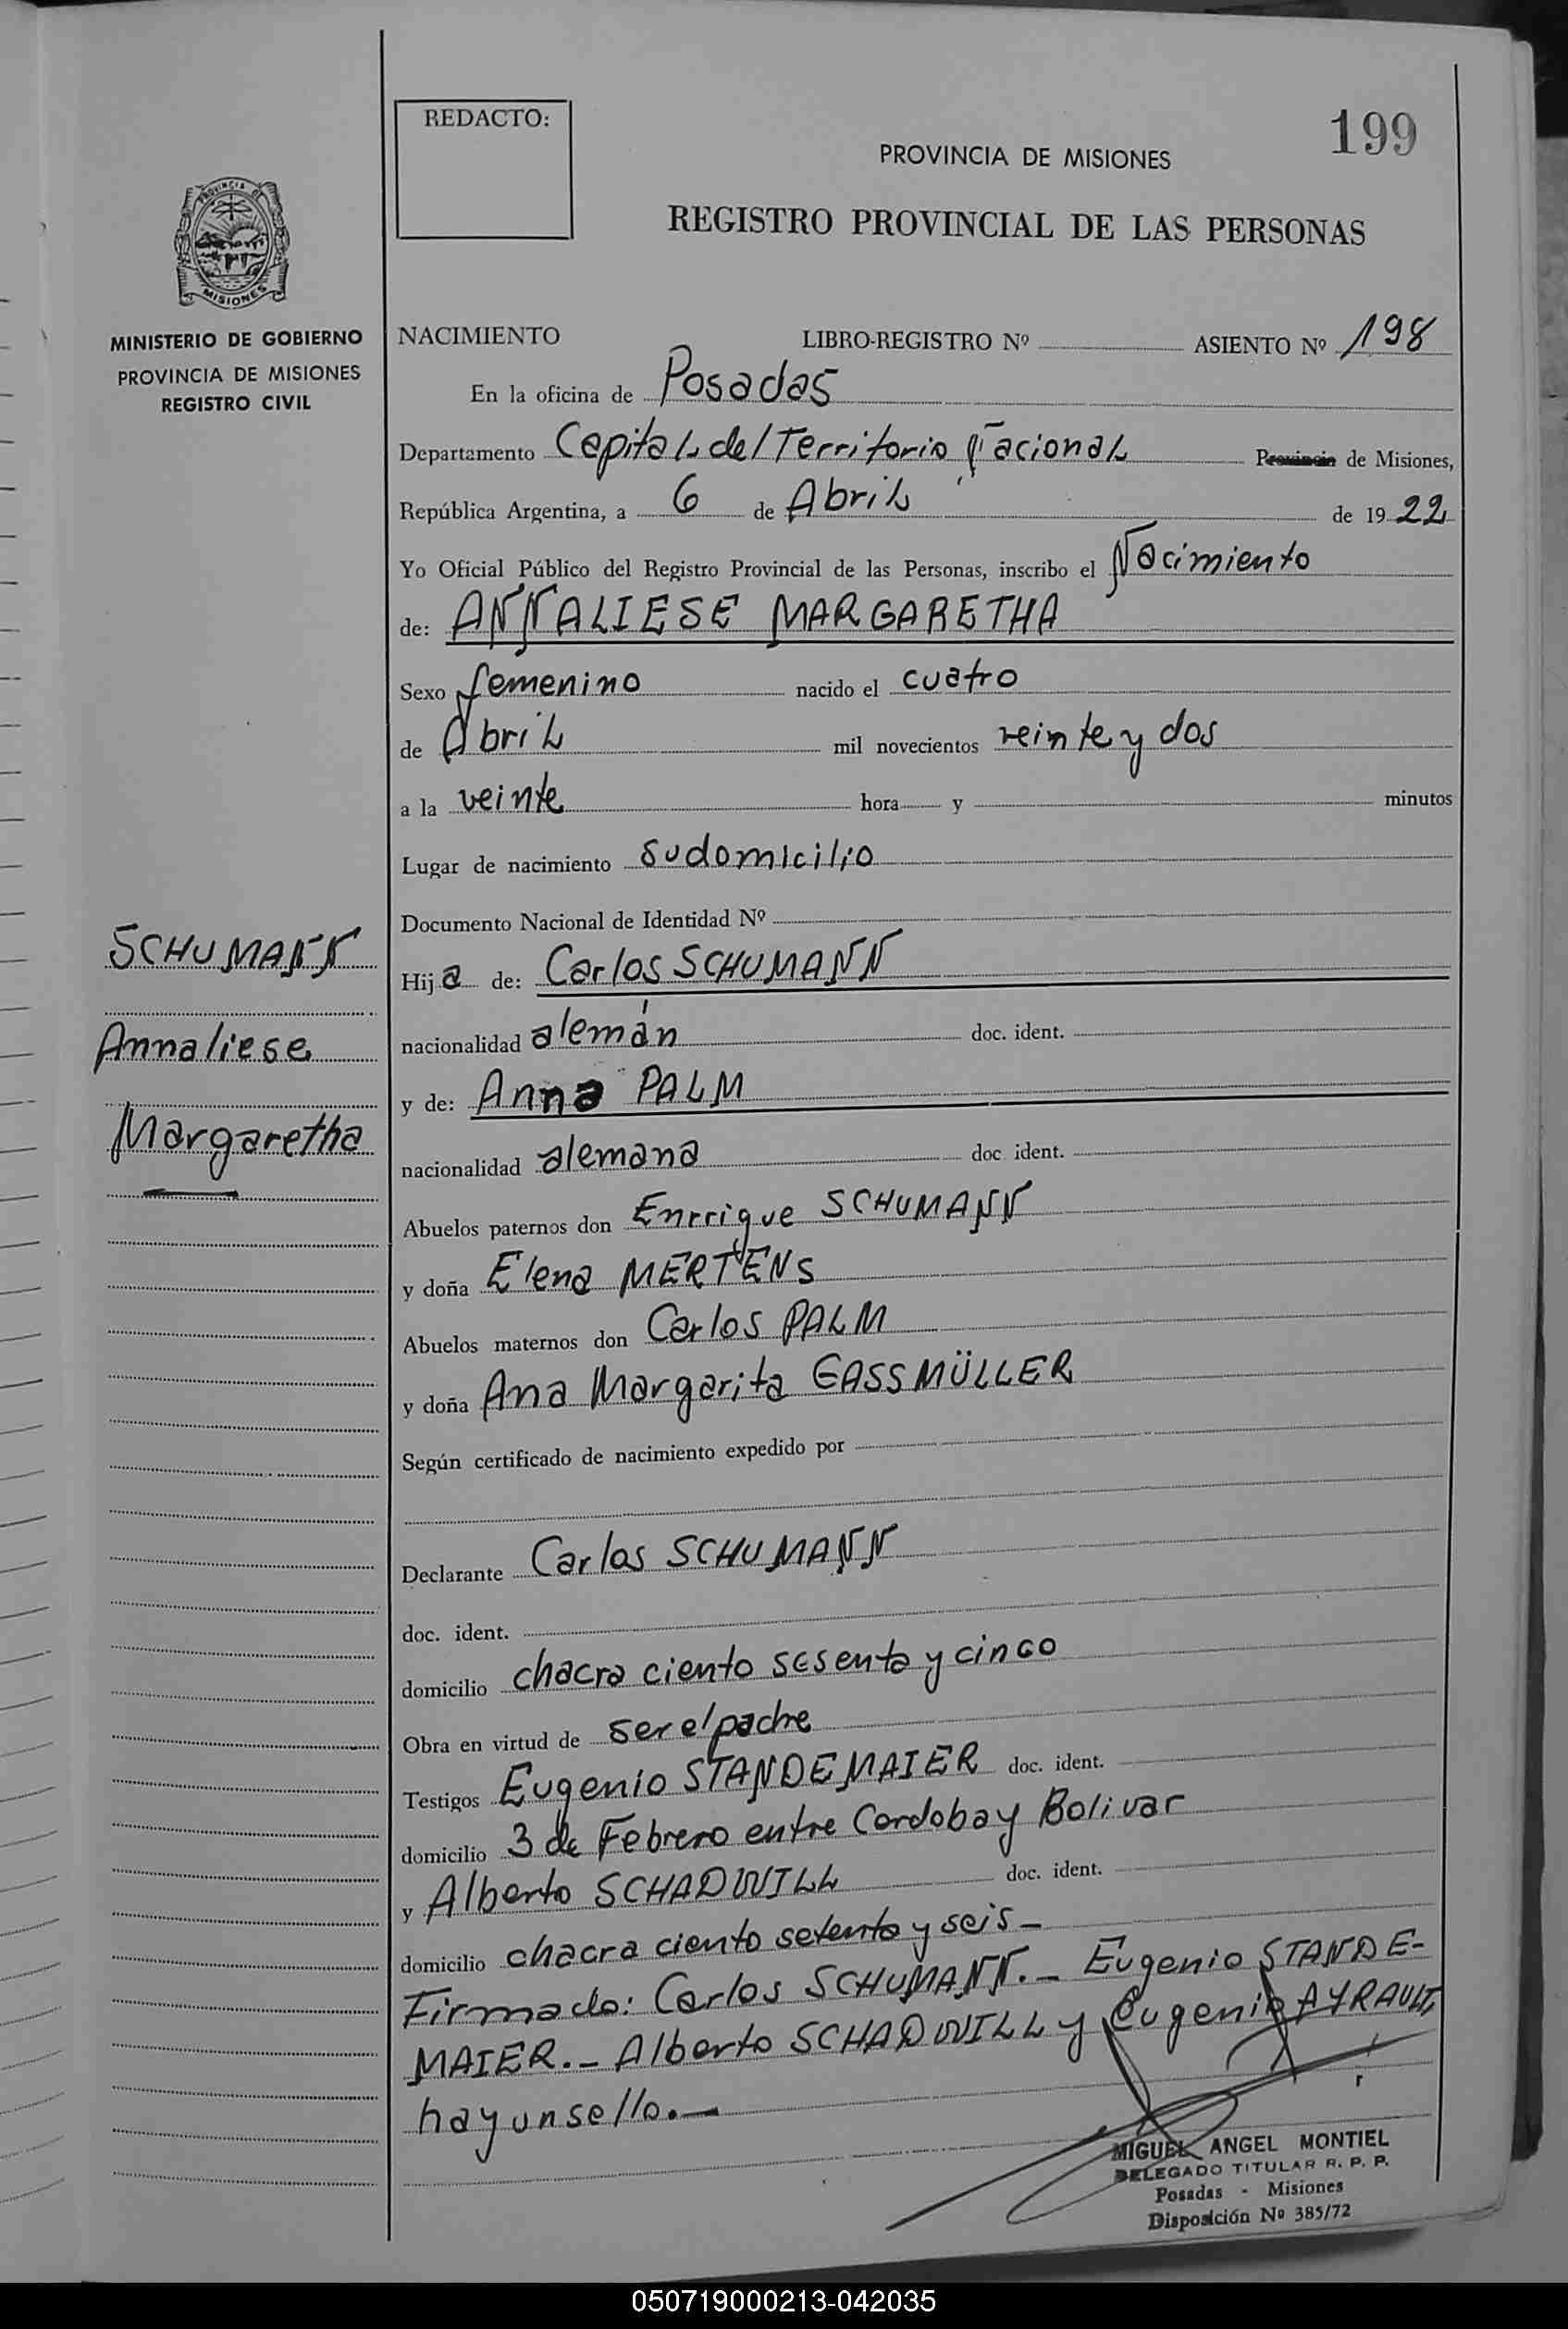 REDACTO:
199
PROVINCIA DE MISIONES
REGISTRO PROVINCIAL DE LAS PERSONAS
PROVINCIA DE
MISIONES
MINISTERIO DE GOBIERNO
PROVINCIA DE MISIONES
REGISTRO CIVIL
NACIMIENTO LIBRO-REGISTRO Nº ASIENTO Nº 198
En la oficina de Posadas
Departamento Capital del Territorio Nacional Provincia de Misiones,
República Argentina, a 6 de Abril de 1922
Yo Oficial Público del Registro Provincial de las Personas, inscribo el Nacimiento
de: ANNALIESE MARGARETHA
Sexo femenino nacido el cuatro
de Abril mil novecientos veinte y dos
a la veinte hora y minutos
Lugar de nacimiento su domicilio
Documento Nacional de Identidad Nº
SCHUMANN
Annaliese
Margaretha
Hija de: Carlos SCHUMANN
nacionalidad alemán doc. ident.
y de: Anna PALM
nacionalidad alemana doc ident.
Abuelos paternos don Enrrique SCHUMANN
y doña Elena MERTENS
Abuelos maternos don Carlos PALM
y doña Ana Margarita GASSMÜLLER
Según certificado de nacimiento expedido por
Declarante Carlos SCHUMANN
doc. ident.
domicilio chacra ciento sesenta y cinco
Obra en virtud de ser el padre
Testigos Eugenio STANDEMAIER doc. ident.
domicilio 3 de Febrero entre Cordoba y Bolivar
y Alberto SCHADWILL doc. ident.
domicilio chacra ciento setenta y seis-
Firmado: Carlos SCHUMANN.- Eugenio STANDE-
MAIER.- Alberto SCHADWILL y Eugenio AYRAULT,
hay un sello.-
MIGUEL ANGEL MONTIEL
DELEGADO TITULAR R. P. P.
Posadas - Misiones
Disposición Nº 385/72
050719000213-042035